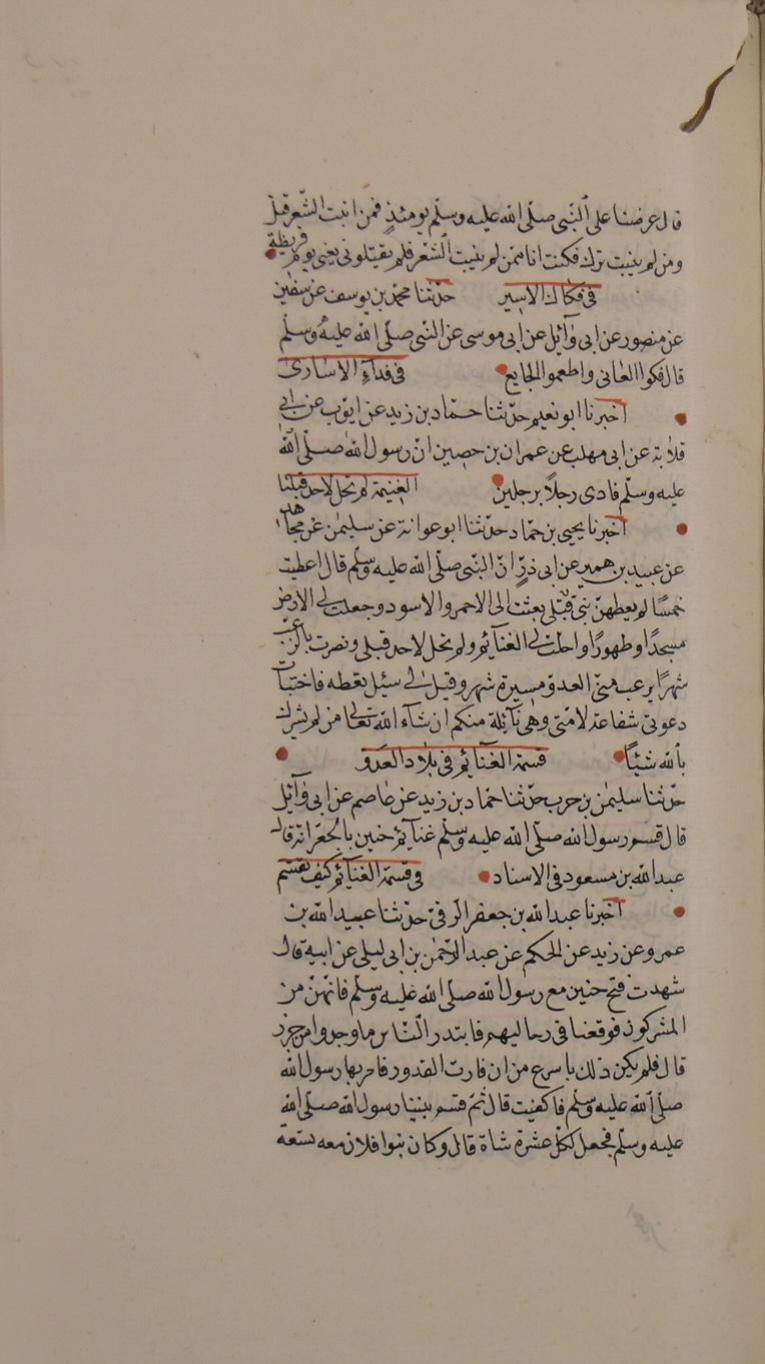 قال عرضنا على النبى صلى الله عليه وسلم يومئذ فمن انبت الشعر قتل
ومن لم ينبت ترك فكنت انا ممن لم ينبت الشعر فلم يقتلونى يعنى يوم قريظة
فى فكاك الاسير حدثنا محمد بن يوسف عن سفين
عن منصور عن ابى وآئل عن ابى موسى عن النبى صلى الله عليه وسلم
قال فكوا العانى واطعموا الجايع فى فدآء الاسارى
اخبرنا ابو نعيم حدثنا حماد بن زيد عن ايوب عن ابى
قلابة عن ابى مهلب عن عمران بن حصين ان رسول الله صلى الله
عليه وسلم فادى رجلا برجلين الغنيمة لم تحل لاحد قبلنا
اخبرنا يحيى بن حماد حدثنا ابو عوانة عن سليمن عن مجاهد
عن عبيد بن عمير عن ابى ذر ان النبى صلى الله عليه وسلم قال اعطيت
خمسا لم يعطهن نبى قبلى بعثت الى الاحمر والاسود وجعلت لى الارض
مسجدا وطهورا واحلت لى الغنآئم ولم تحل لاحد قبلى ونصرت بالرعب
شهرا يرعب منى العدو مسيرة شهر وقيل لى سئل تعطه فاختبات
دعوتى شفاعة لامتى وهى نآئلة منكم ان شآء الله تعالى من لم يشرك
بالله شيئا قسمة الغنآئم فى بلاد العدو
حدثنا سليمن بن حرب حدثنا حماد بن زيد عن عاصم عن ابى وآئل
قال قسم رسول الله صلى الله عليه وسلم غنآئم حنين بالجعرانة قال
عبد الله بن مسعود فى الاسناد فى قسمة الغنآئم كيف تقسم
اخبرنا عبد الله بن جعفر الرقى حدثنا عبيد الله بن
عمرو عن زيد عن الحكم عن عبد الرحمن بن ابى ليلى عن ابيه قال
شهدت فتح حنين مع رسول الله صلى الله عليه وسلم فانهزم
المشركون فوقعنا فى رحاليهم فابتدر الناس ما وجدوا من جزر
قال فلم يكن ذلك باسرع من ان فارت القدور فامر بها رسول الله
صلى الله عليه وسلم فاكفيت قال ثم قسم بيننا رسول الله صلى الله
عليه وسلم فجعل لكل عشرة شاة قال وكان بنوا فلان معه تسعة